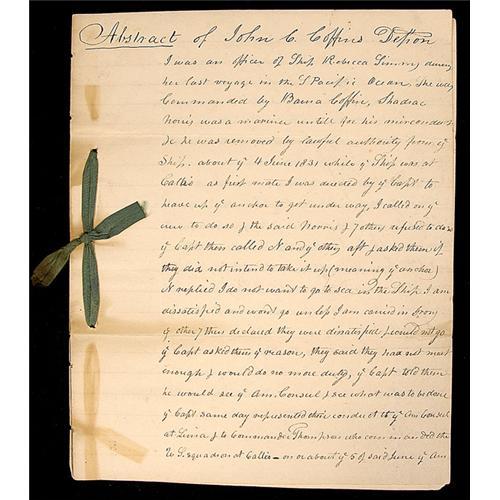 Abstract of John C. Coffins Deption
I was an officer of Ship Rebecca Simms during
her last voyage in the S Pacific Ocean. She was
Commanded by Coffin, Shadrac
Norris was a mariner untill for his misconduct
&c he was removed by lawful authority from ye
Ship. about ye 4 June 1831 while ye Ship was at
Callao as first mate I was directed by ye Capt to
heave up ye anchor to get under way, I called on ye
crew to do so & the said Norris & 7 others refused to do so
ye Capt then called N and ye others aft & asked them if
they did not intend to take it up (meaning ye anchor)
N replied I do not want to go to sea in the Ship. I am
dissatisfied and wont go unless I am carried in Irons
ye others then declared they were dissatisfied & would not go
ye Capt asked them ye reason, they said they had not meat
enough & would do no more duty, ye Capt told them
he would see ye Am. Consul & see what was to be done
ye Capt same day represented their conduct to ye Am Consul
at Lima & to Commander Thompson who commanded the
U S. squadron at Callao - on or about ye 5 of said June ye Am